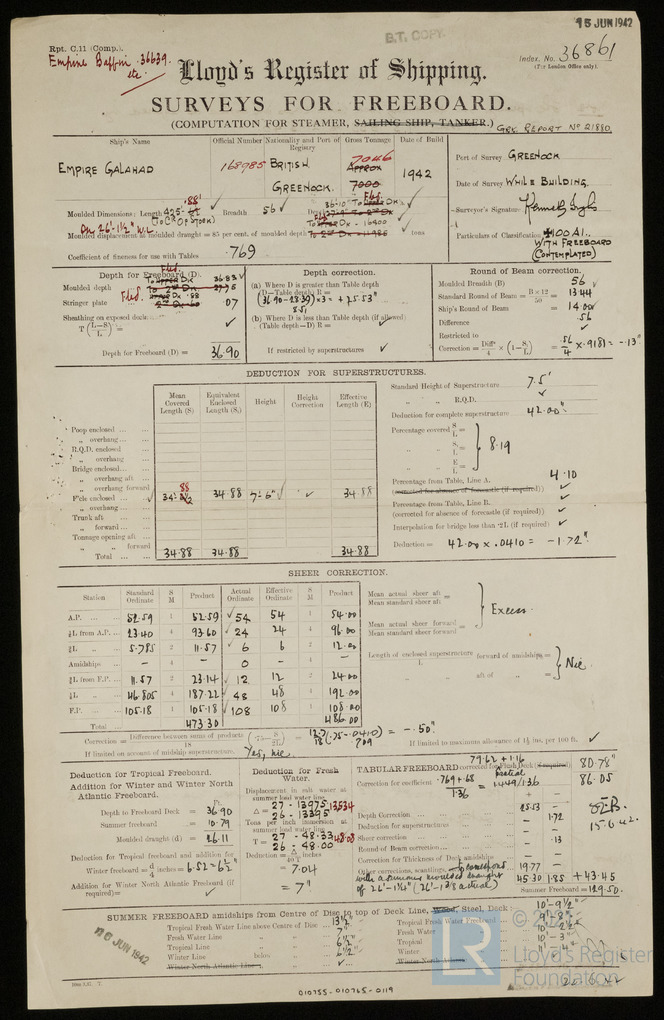 15 JUN 1942
B.T. COPY.
Rpt. C.11 (Comp.).
Empire Baffin 36639.
etc.
Index. No. 36861
(For London Office only).
Lloyd's Register of Shipping.
SURVEYS FOR FREEBOARD.
(COMPUTATION FOR STEAMER, SAILING SHIP, TANKER.)
GRK. REPORT No 21880.
Ship's Name
Official Number
Nationality and Port of Registry
Gross Tonnage
Date of Build
EMPIRE GALAHAD
168985
BRITISH
GREENOCK.
7046
APPROX
7000
1942
Port of Survey GREENOCK
Date of Survey WHILE BUILDING.
Surveyor's Signature
Particulars of Classification 100 A1.
WITH FREEBOARD
(CONTEMPLATED)
Moulded Dimensions: Length 425'
Breadth 56
Moulded displacement at moulded draught = 85 per cent. of moulded depth
tons
Coefficient of fineness for use with Tables .769
Depth for Freeboard (D).
Moulded depth 36.83
Stringer plate .07
Sheathing on exposed deck
T(L-S/L) =
Depth for Freeboard (D) = 36.90
Depth correction.
(a) Where D is greater than Table depth
(D-Table depth) R =
(36.90 - 28.39) × 3 = +25.53"
8.51
(b) Where D is less than Table depth (if allowed)
(Table depth-D) R =
If restricted by superstructures
Round of Beam correction.
Moulded Breadth (B) 56
Standard Round of Beam = B×12/50 = 13.44
Ship's Round of Beam = 14.00
Difference .56
Restricted to
Correction = Diff/4 × (1-S/L) = .56/4 × .918) = -.13"
DEDUCTION FOR SUPERSTRUCTURES.
Mean Covered Length (S)
Equivalent Enclosed Length (S₁)
Height
Height Correction
Effective Length (E)
Poop enclosed
" overhang
R.Q.D. enclosed
" overhang
Bridge enclosed
" overhang aft
" overhang forward
F'cle enclosed 34.88 34.88 7'-6" 34.88
" overhang
Trunk aft
" forward
Tonnage opening aft
" " forward
Total 34.88 34.88 34.88
Standard Height of Superstructure 7.5'
" " R.Q.D.
Deduction for complete superstructure 42.00"
Percentage covered S/L =
" " S₁/L = 8.19
" " E/L =
Percentage from Table, Line A. 4.10
(corrected for absence of forecastle (if required))
Percentage from Table, Line B.
(corrected for absence of forecastle (if required))
Interpolation for bridge less than .2L (if required)
Deduction = 42.00 × .0410 = -1.72"
SHEER CORRECTION.
Station
Standard Ordinate
S M
Product
Actual Ordinate
Effective Ordinate
S M
Product
A.P. 52.59 1 52.59 54 54 1 54.00
⅙L from A.P. 23.40 4 93.60 24 24 4 96.00
⅓L " 5.785 2 11.57 6 6 2 12.00
Amidships - 4 - 0 - 4 -
⅓L from F.P. 11.57 2 23.14 12 12 2 24.00
⅙L " 46.805 4 187.22 48 48 4 192.00
F.P. 105.18 1 105.18 108 108 1 108.00
Total 473.30 486.00
Mean actual sheer aft =
Mean standard sheer aft
Mean actual sheer forward =
Mean standard sheer forward
Excess.
Length of enclosed superstructure forward of amidships =
L
" " aft of " =
Nil.
Correction = Difference between sums of products/18 (.75-S/2L) = 12.7/18 (.75-.0410) = -.50"
.709
If limited on account of midship superstructure. Yes, nil.
If limited to maximum allowance of 1½ ins. per 100 ft.
Deduction for Tropical Freeboard.
Addition for Winter and Winter North Atlantic Freeboard.
Depth to Freeboard Deck = 36.90
Summer freeboard = 10.79
Moulded draught (d) = 26.11
Deduction for Tropical freeboard and addition for
Winter freeboard d/4 inches = 6.52 = 6½"
Addition for Winter North Atlantic Freeboard (if required) =
Deduction for Fresh Water.
Displacement in salt water at summer load water line
Δ = 27 - 13975 13534
26 - 13395
Tons per inch immersion at summer load water line
T = 27 - 48.33 48.08
26 - 48.00
Deduction = Δ/40T inches
= 7.04
= 7"
TABULAR FREEBOARD corrected for Flush Deck (if required)
79.62 + 1.16
80.78"
Correction for coefficient .769 + .68 / 1.36 = 1.449/1.36
86.05
+ -
Depth Correction 25.53 -
Deduction for superstructures - 1.72
Sheer correction - -
Round of Beam correction - .13
Correction for Thickness of Deck amidships - -
Other corrections, scantlings, 19.77 -
with a summer moulded draught
of 26'-1¼" (26'-1 3/8 actual)
45.30 1.85 +43.45
Summer Freeboard = 129.50
15.6.42.
SUMMER FREEBOARD amidships from Centre of Disc to top of Deck Line, Wood, Steel, Deck: 10'-9½"
Tropical Fresh Water Line above Centre of Disc 13½"
Fresh Water Line " " 7"
Tropical Line " " 6½"
Winter Line below " 6½"
Winter North Atlantic Line
Tropical Fresh Water Freeboard 9'-8"
Fresh Water " 10'-2½"
Tropical " 10'-3"
Winter " 11'-4"
Winter North Atlantic "
16 JUN 1942
©
LR
Lloyd's Register
Foundation
010755-010765-0119